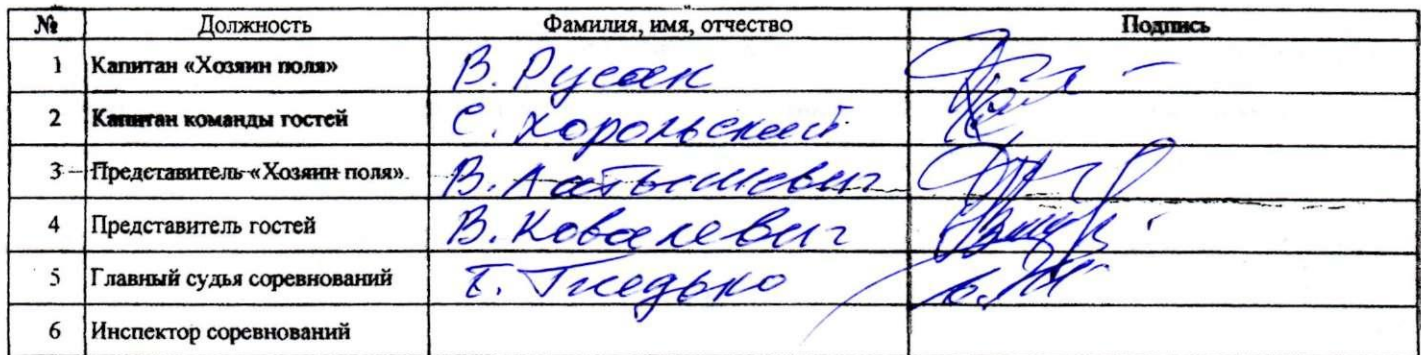 № Должность Фамилия, имя, отчество Подпись
1 Капитан «Хозяин поля» В. Русак
2 Капитан команды гостей С. Хорольский
3 Представитель «Хозяин поля» В. Латышевич
4 Представитель гостей В. Ковалевич
5 Главный судья соревнований Гнедько
6 Инспектор соревнований